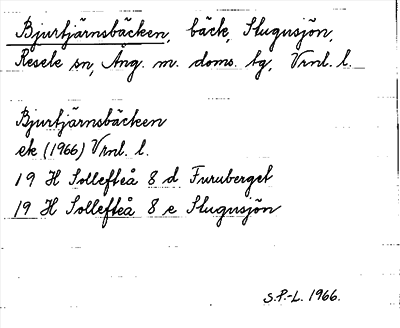 Bjurtjärnsbäcken, bäck, Stugusjön,
Resele sn, Ång. m. doms. tg, Vrnl. l.
Bjurtjärnsbäcken
ek (1966) Vrnl. l.
19 H Sollefteå 8 d Furuberget
19 H Sollefteå 8 e Stugusjön
S.P.-L. 1966.